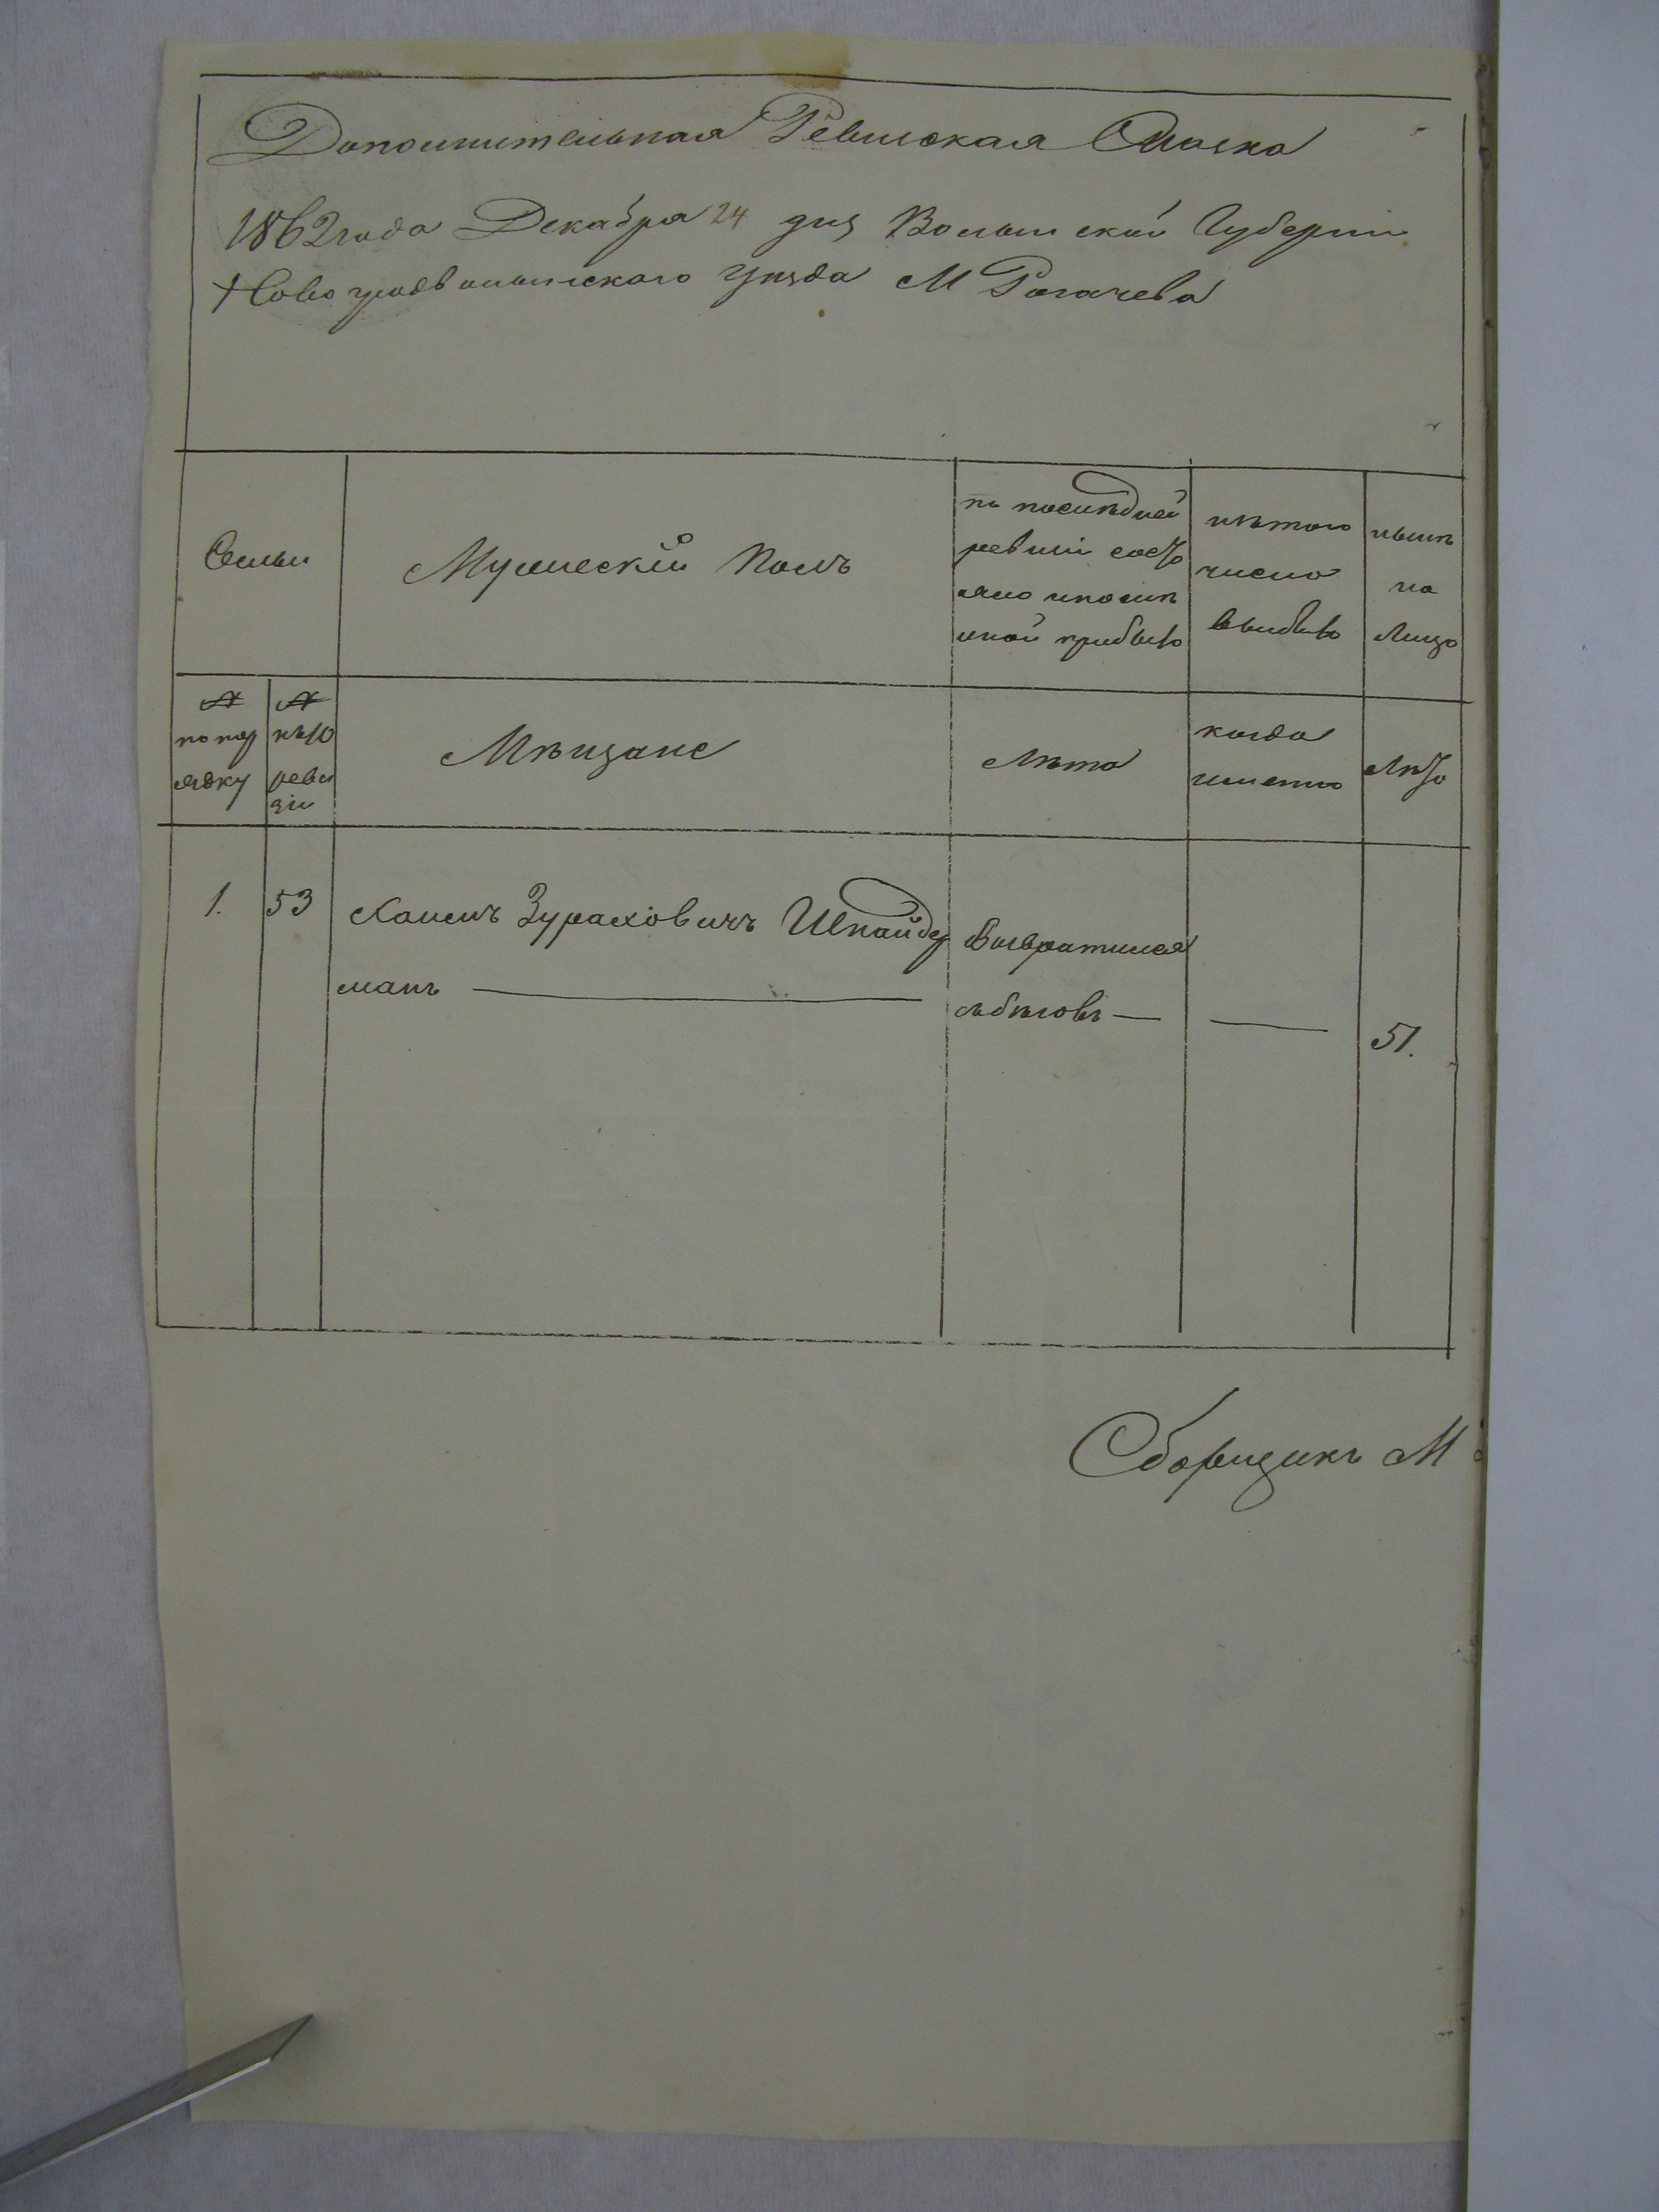 Дополнительная Ревизская Сказка
1862 года Декабря 24 дня Волынской Губерніи
Новоградволынскаго уезда М Рогачева
Семьи
Мужескій Полъ
по последней
ревизіи состо
яло и после
оной прибыло
изтого
число
выбыло
ныне
на
Лицо
№
по пор
ядку
№
по 10
реви
зіи
Мѣщане
Лѣта
когда
именно
Лѣта
1.
53
Хаимъ Зураховичъ Шнайдер
манъ
Возвратился
съ бѣговъ
51.
Сборщикъ М